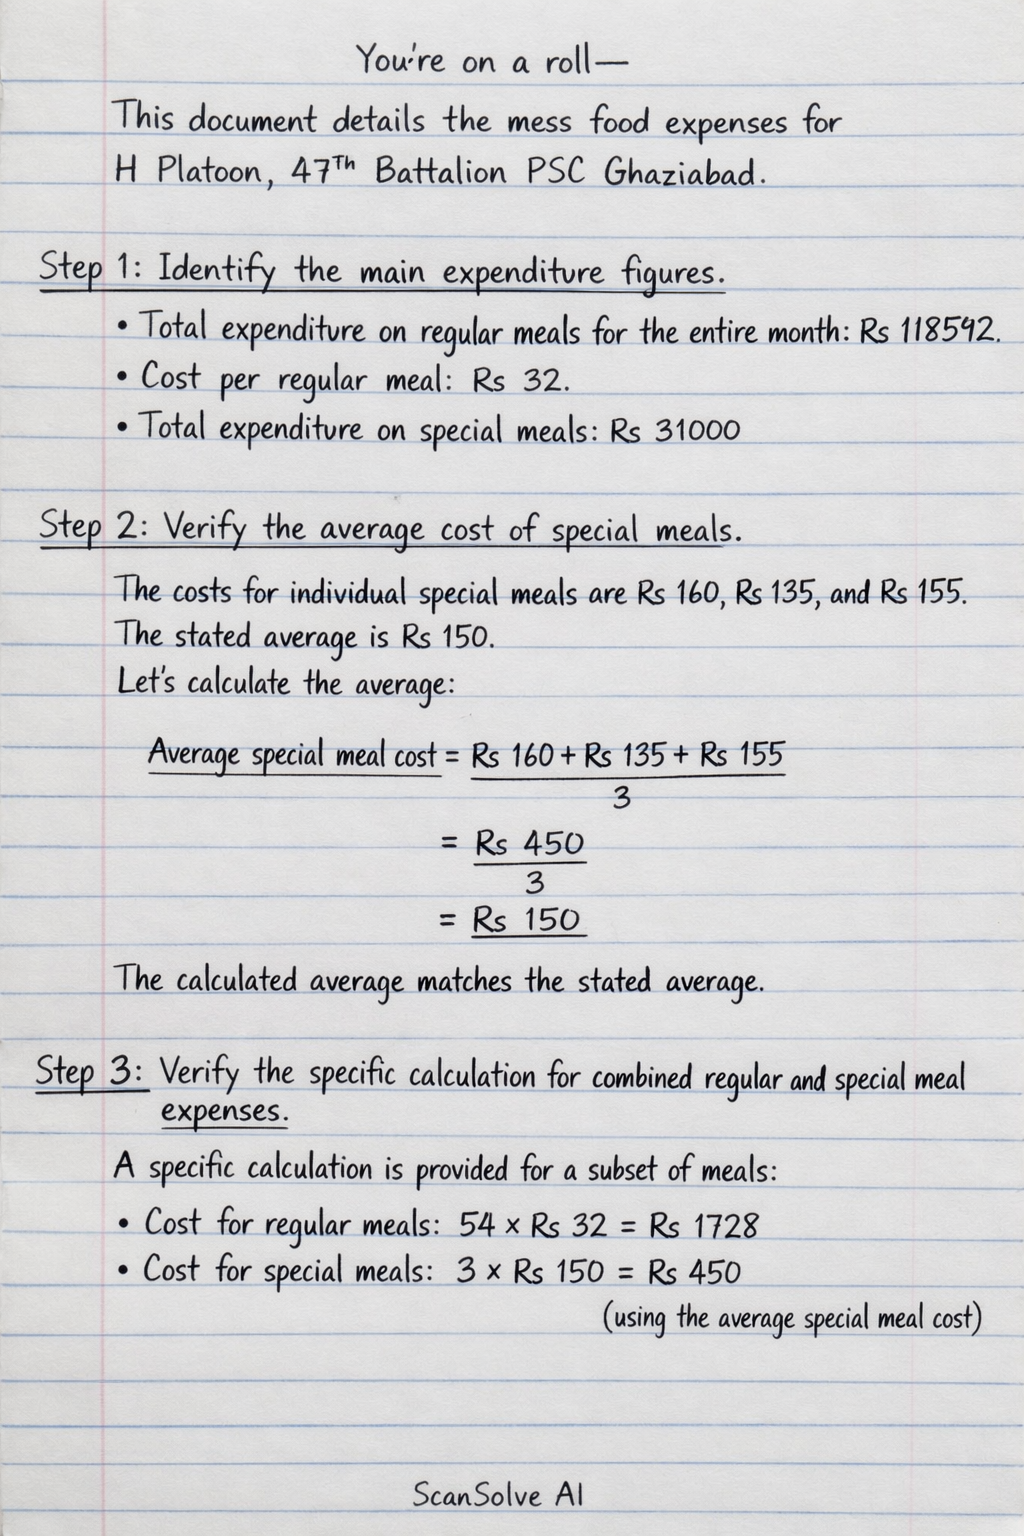 You're on a roll—
This document details the mess food expenses for
H Platoon, 47Th Battalion PSC Ghaziabad.
Step 1: Identify the main expenditure figures.
• Total expenditure on regular meals for the entire month: Rs 118592.
• Cost per regular meal: Rs 32.
• Total expenditure on special meals: Rs 31000
Step 2: Verify the average cost of special meals.
The costs for individual special meals are Rs 160, Rs 135, and Rs 155.
The stated average is Rs 150.
Let's calculate the average:
Average special meal cost = Rs 160 + Rs 135 + Rs 155
3
= Rs 450
3
= Rs 150
The calculated average matches the stated average.
Step 3: Verify the specific calculation for combined regular and special meal
expenses.
A specific calculation is provided for a subset of meals:
• Cost for regular meals: 54 × Rs 32 = Rs 1728
• Cost for special meals: 3 × Rs 150 = Rs 450
(using the average special meal cost)
ScanSolve AI